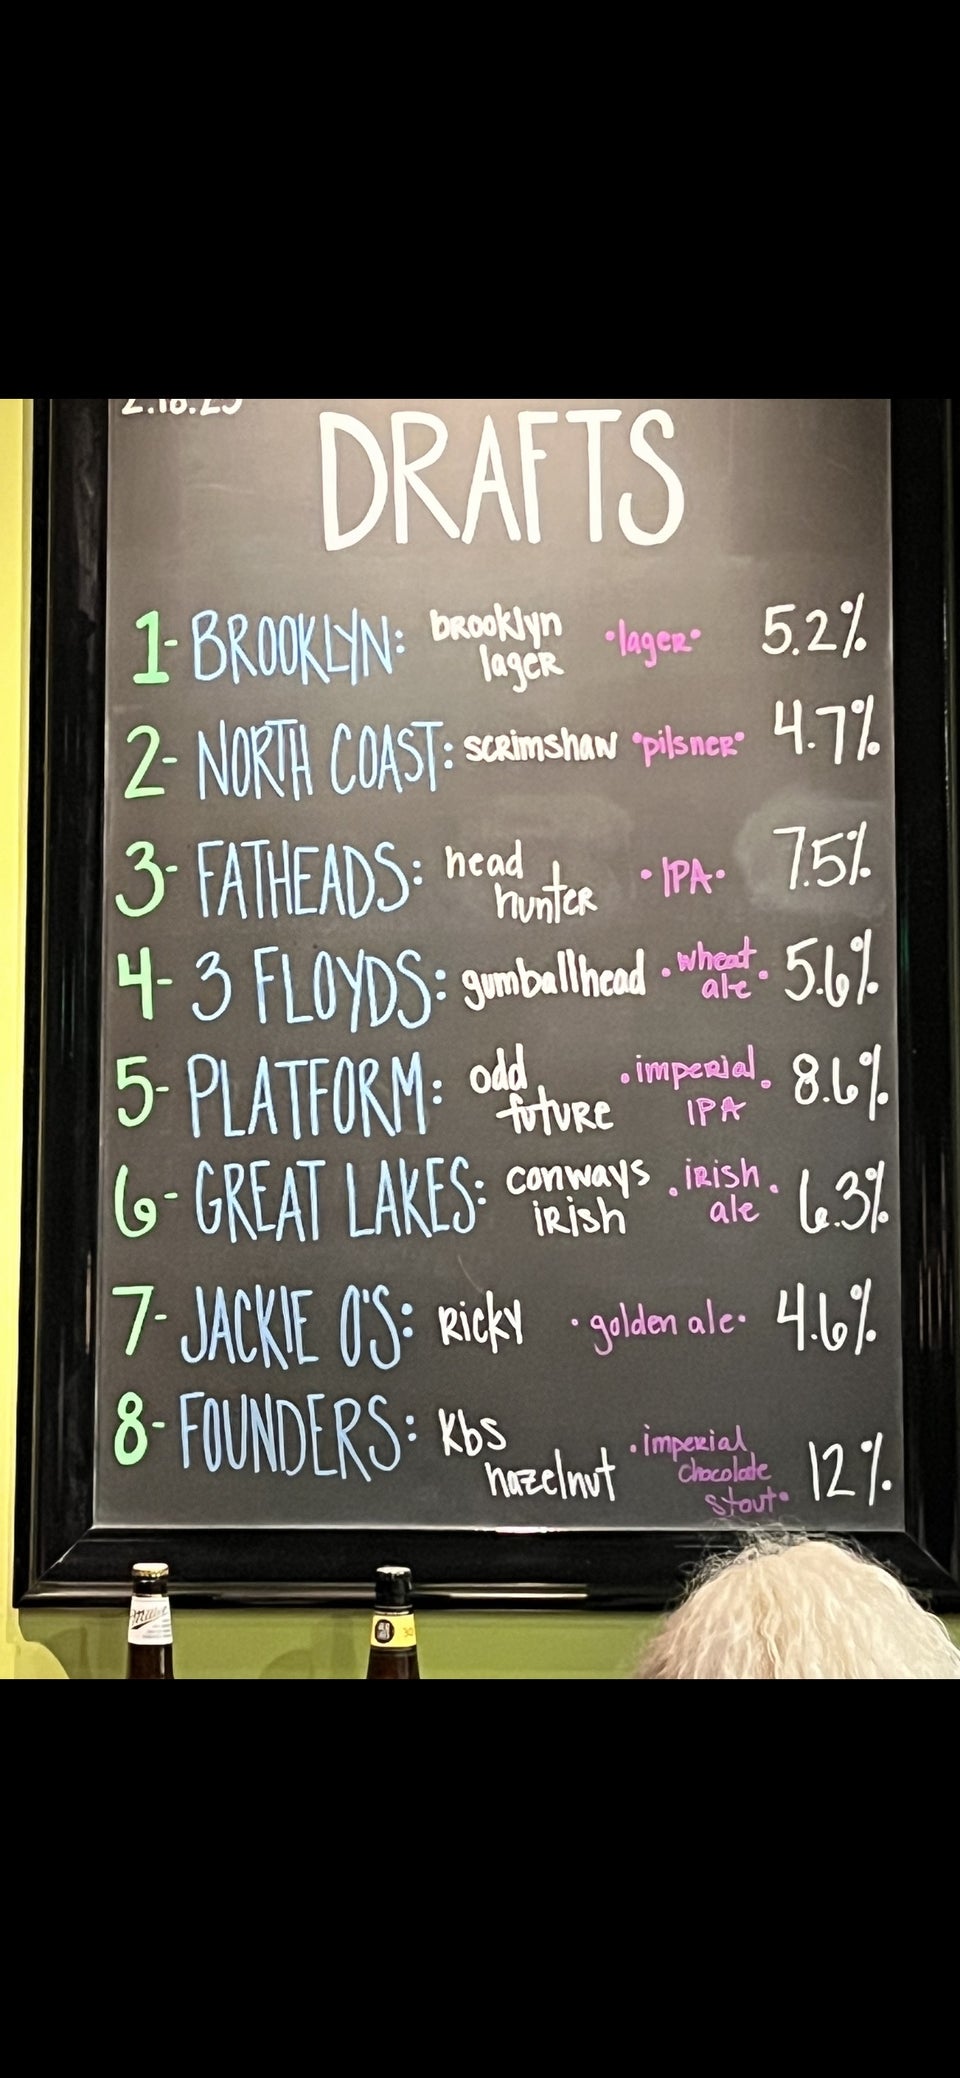 2.18.23
DRAFTS
1- BROOKLYN: brooklyn lager •lager• 5.2%
2- NORTH COAST: scrimshaw •pilsner• 4.7%
3- FATHEADS: head hunter •IPA• 7.5%
4- 3 FLOYDS: gumballhead •wheat ale• 5.6%
5- PLATFORM: odd future •imperial IPA• 8.6%
6- GREAT LAKES: conways irish •irish ale• 6.3%
7- JACKIE O'S: Ricky •golden ale• 4.6%
8- FOUNDERS: kbs hazelnut •imperial chocolate stout• 12%
Miller